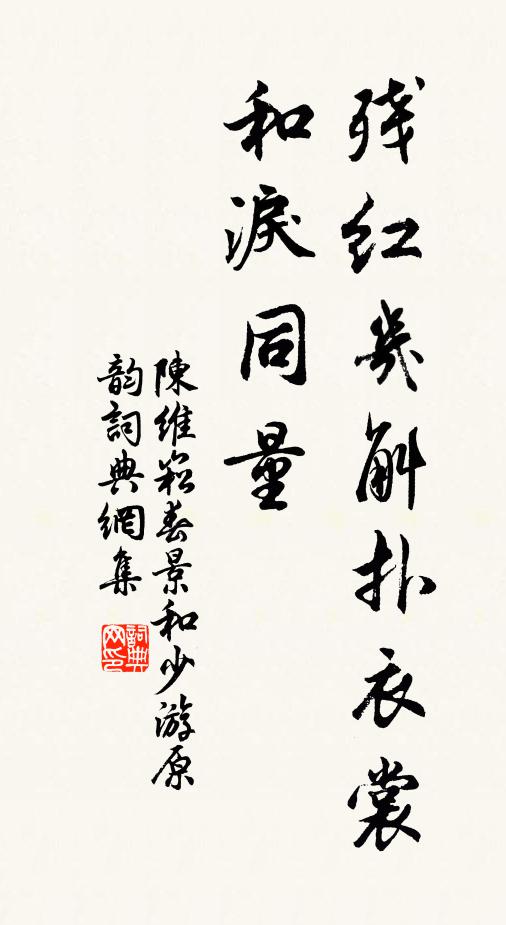 残红幾斛扑衣裳
和淚同量
陳維崧春景和少游原
韵詞典網集
詞典网印